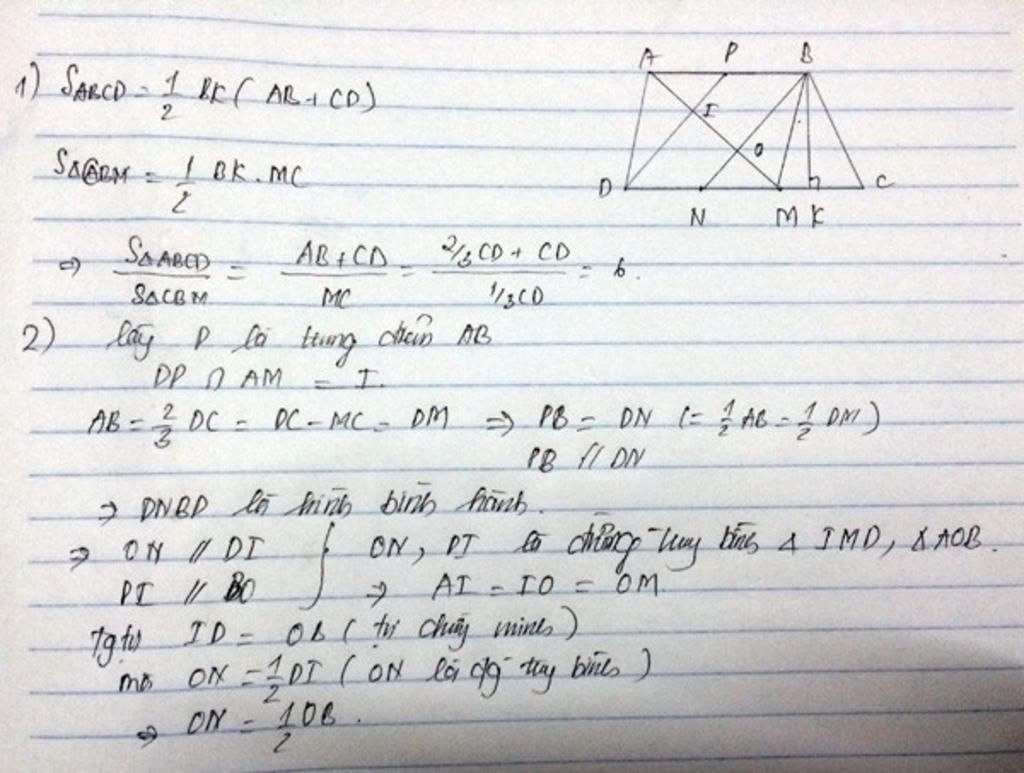 A P B
I
O
D N M K C
1) SABCD = 1/2 BK ( AB + CD)
SΔCBM = 1/2 BK . MC
⇒ SΔABCD / SΔCBM = AB + CD / MC = 2/3 CD + CD / 1/3 CD = 6.
2) lấy P là trung điểm AB
DP ∩ AM = I.
AB = 2/3 DC = DC - MC = DM ⇒ PB = DN (= 1/2 AB = 1/2 DM)
PB // DN
⇒ DNBP là hình bình hành.
⇒ ON // DI } ON, PI là đường tuy bình Δ IMD, ΔAOB.
PI // BO ⇒ AI = IO = OM.
Tgtự ID = OB ( tự chứng minh )
mà ON = 1/2 DI ( ON là đg tuy bình )
⇒ ON = 1/2 OB .